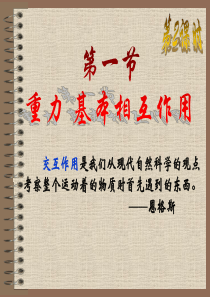 第2课时
第一节
重力 基本相互作用
交互作用是我们从现代自然科学的观点
考察整个运动着的物质时首先遇到的东西。
——恩格斯